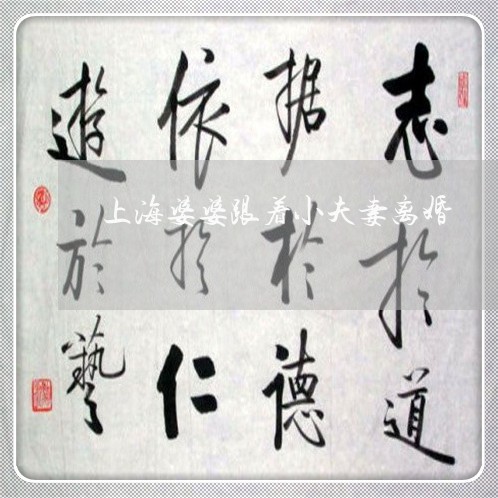 志於道
据於德
依於仁
遊於藝
上海婆婆跟着小夫妻离婚